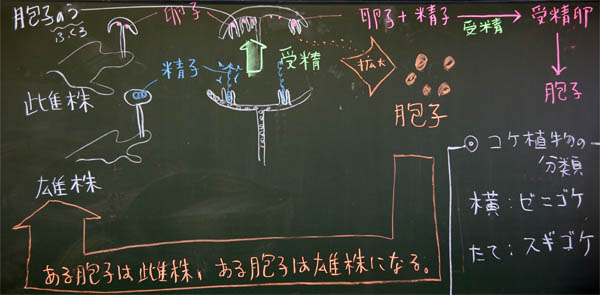 胞子のう
ふくろ
卵子
卵子+精子
受精
受精卵
精子
受精
拡大
胞子
胞子
雌株
雄株
コケ植物の
分類
横:ゼニゴケ
たて:スギゴケ
ある胞子は雌株、ある胞子は雄株になる。